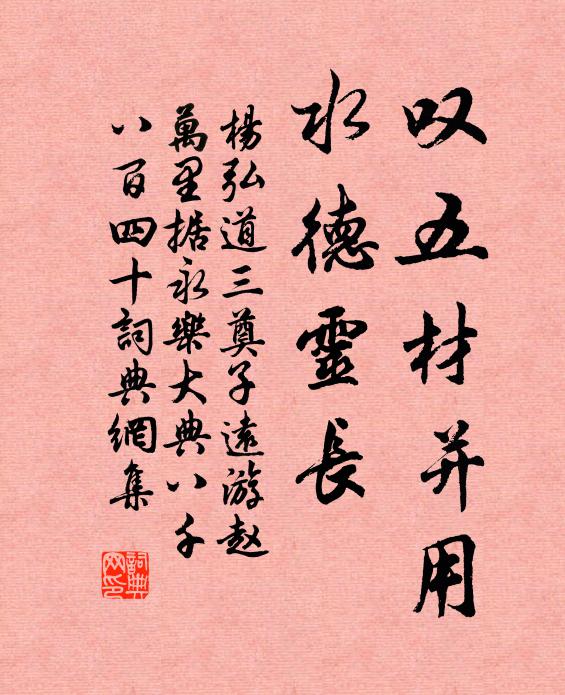 叹五材并用
水德靈長
楊弘道三奠子遠游赵
萬里据永樂大典八千
八百四十詞典網集
詞典网印